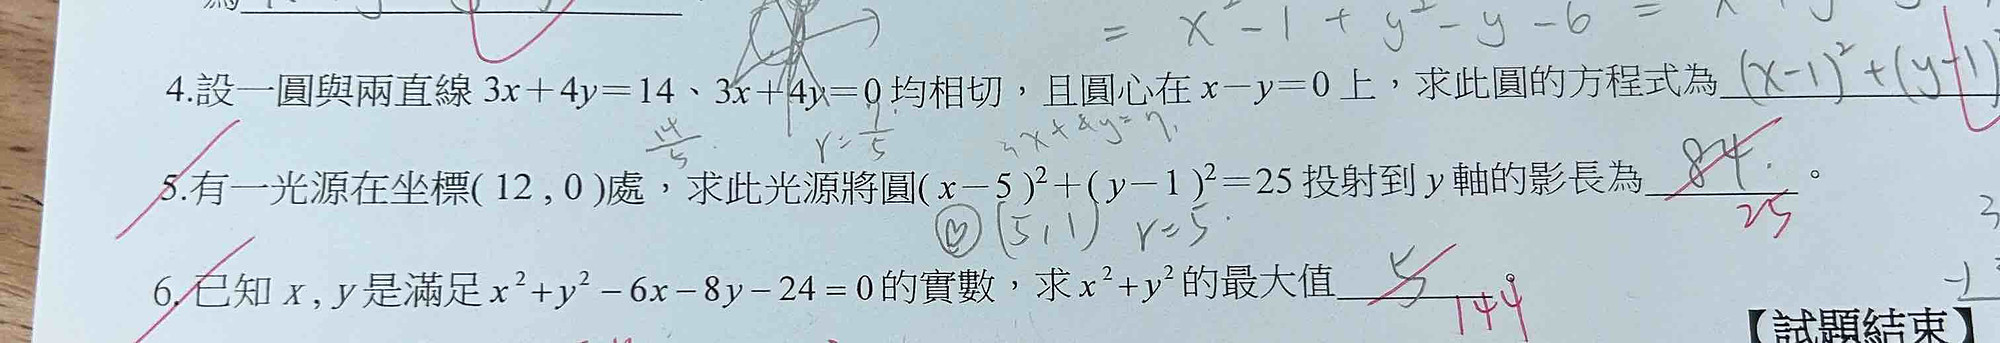 為
= x²-1+y²-y-6 =
4.設一圓與兩直線 3x+4y=14、3x+4y=0 均相切，且圓心在 x-y=0 上，求此圓的方程式為 (x-1)²+(y-1)²
14/5 r=7/5 3x+4y=7
5.有一光源在坐標( 12 , 0 )處，求此光源將圓( x-5 )²+( y-1 )²=25 投射到 y 軸的影長為 84 。
25
(5,1) r=5
6.已知 x , y 是滿足 x²+y²-6x-8y-24=0 的實數，求 x²+y² 的最大值 5 。
144
【試題結束】